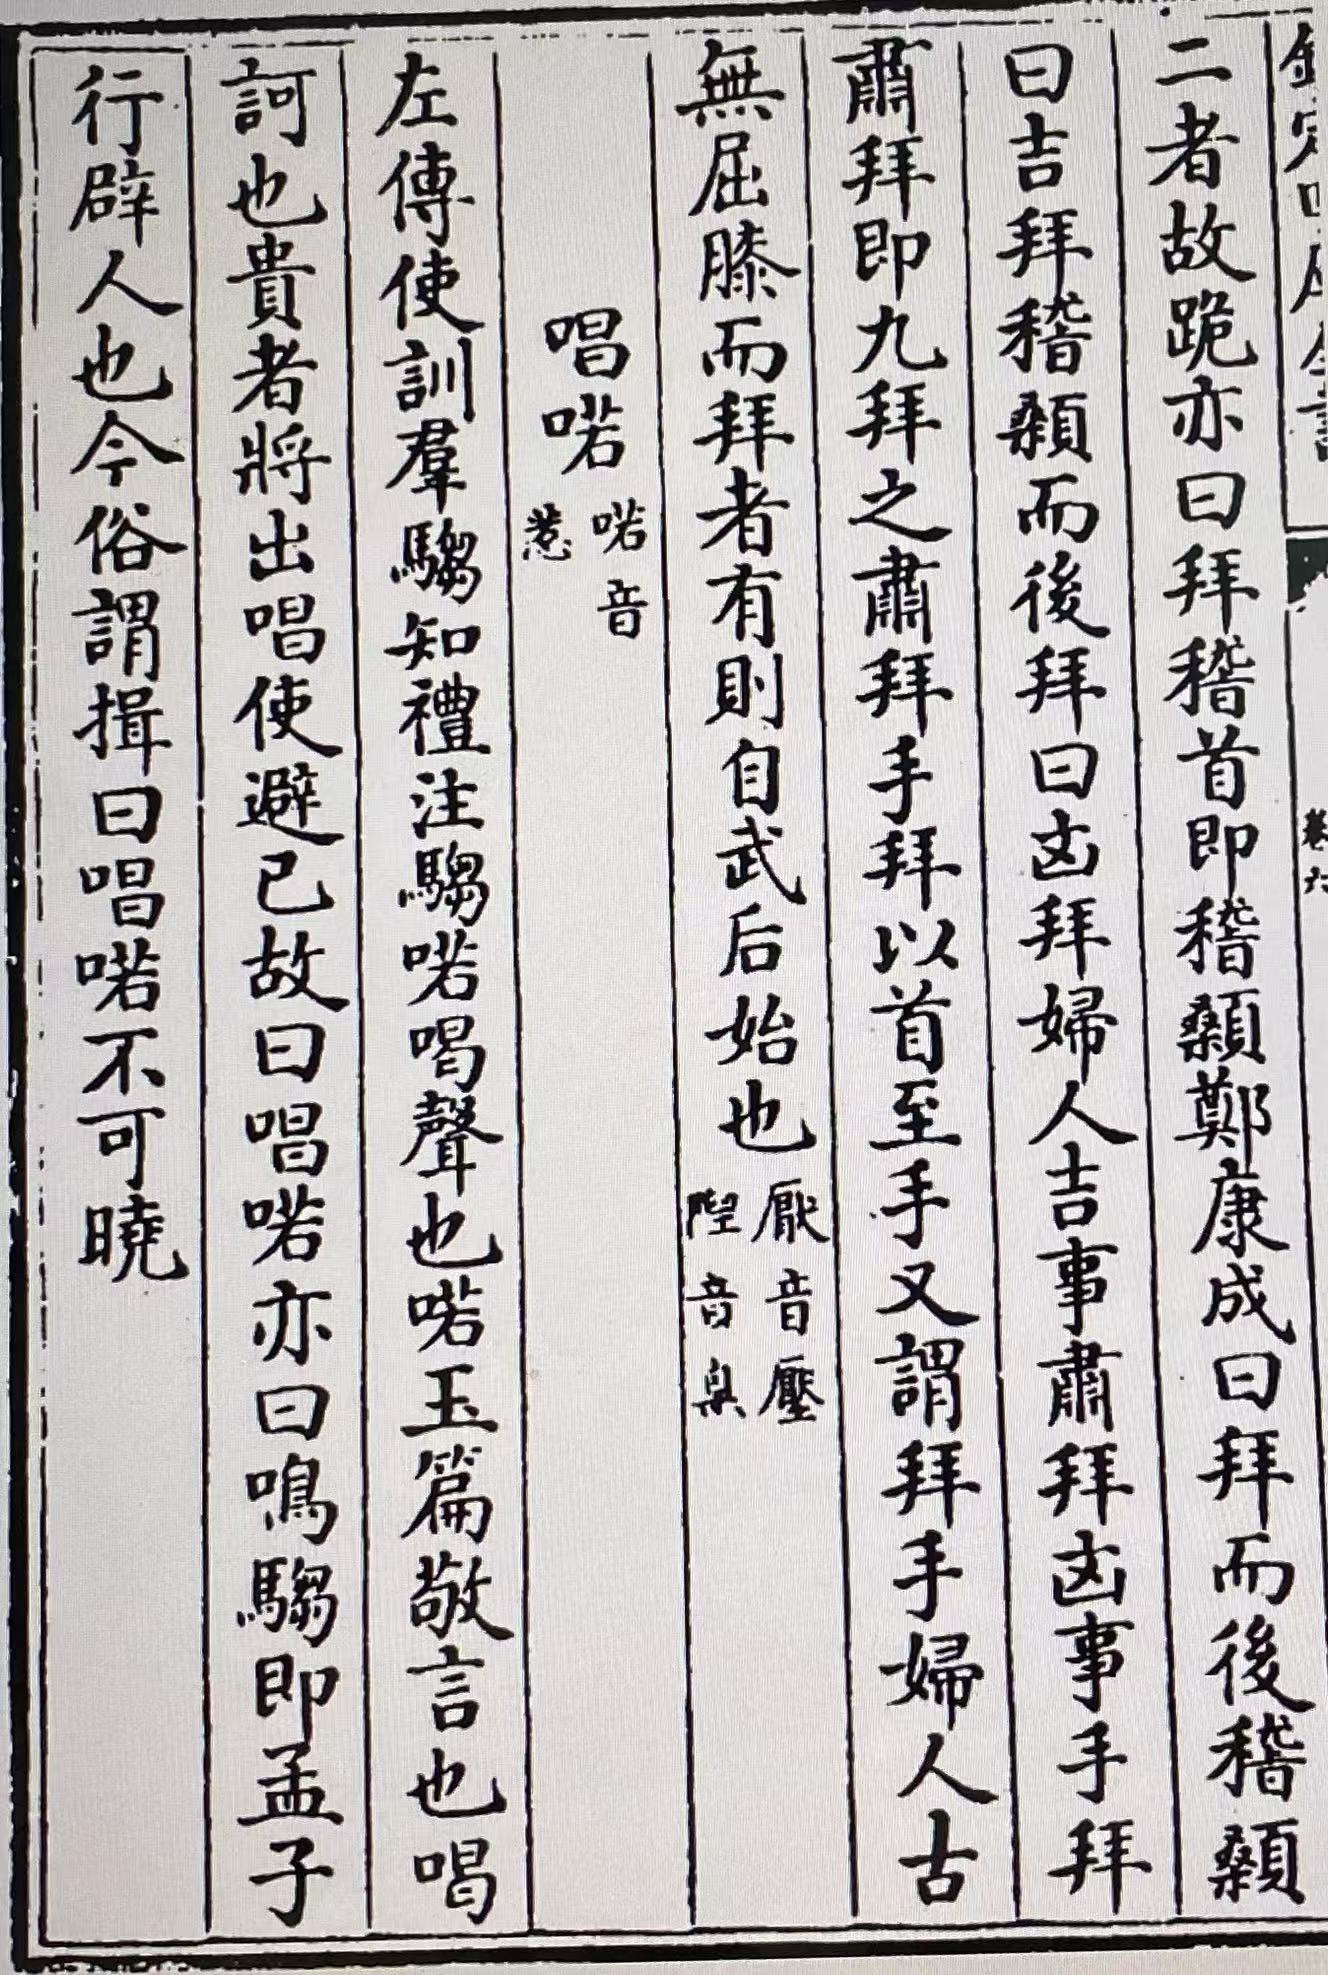 欽定四庫全書
卷六
二者故跪亦曰拜稽首即稽顙鄭康成曰拜而後稽顙
曰吉拜稽顙而後拜曰凶拜婦人吉事肅拜凶事手拜
肅拜即九拜之肅拜手拜以首至手又謂拜手婦人古
無屈膝而拜者有則自武后始也厭音壓陧音臬
唱喏喏音惹
左傳使訓羣騶知禮注騶喏喝聲也喏玉篇敬言也喝
訶也貴者將出唱使避已故曰唱喏亦曰鳴騶即孟子
行辟人也今俗謂揖曰唱喏不可曉